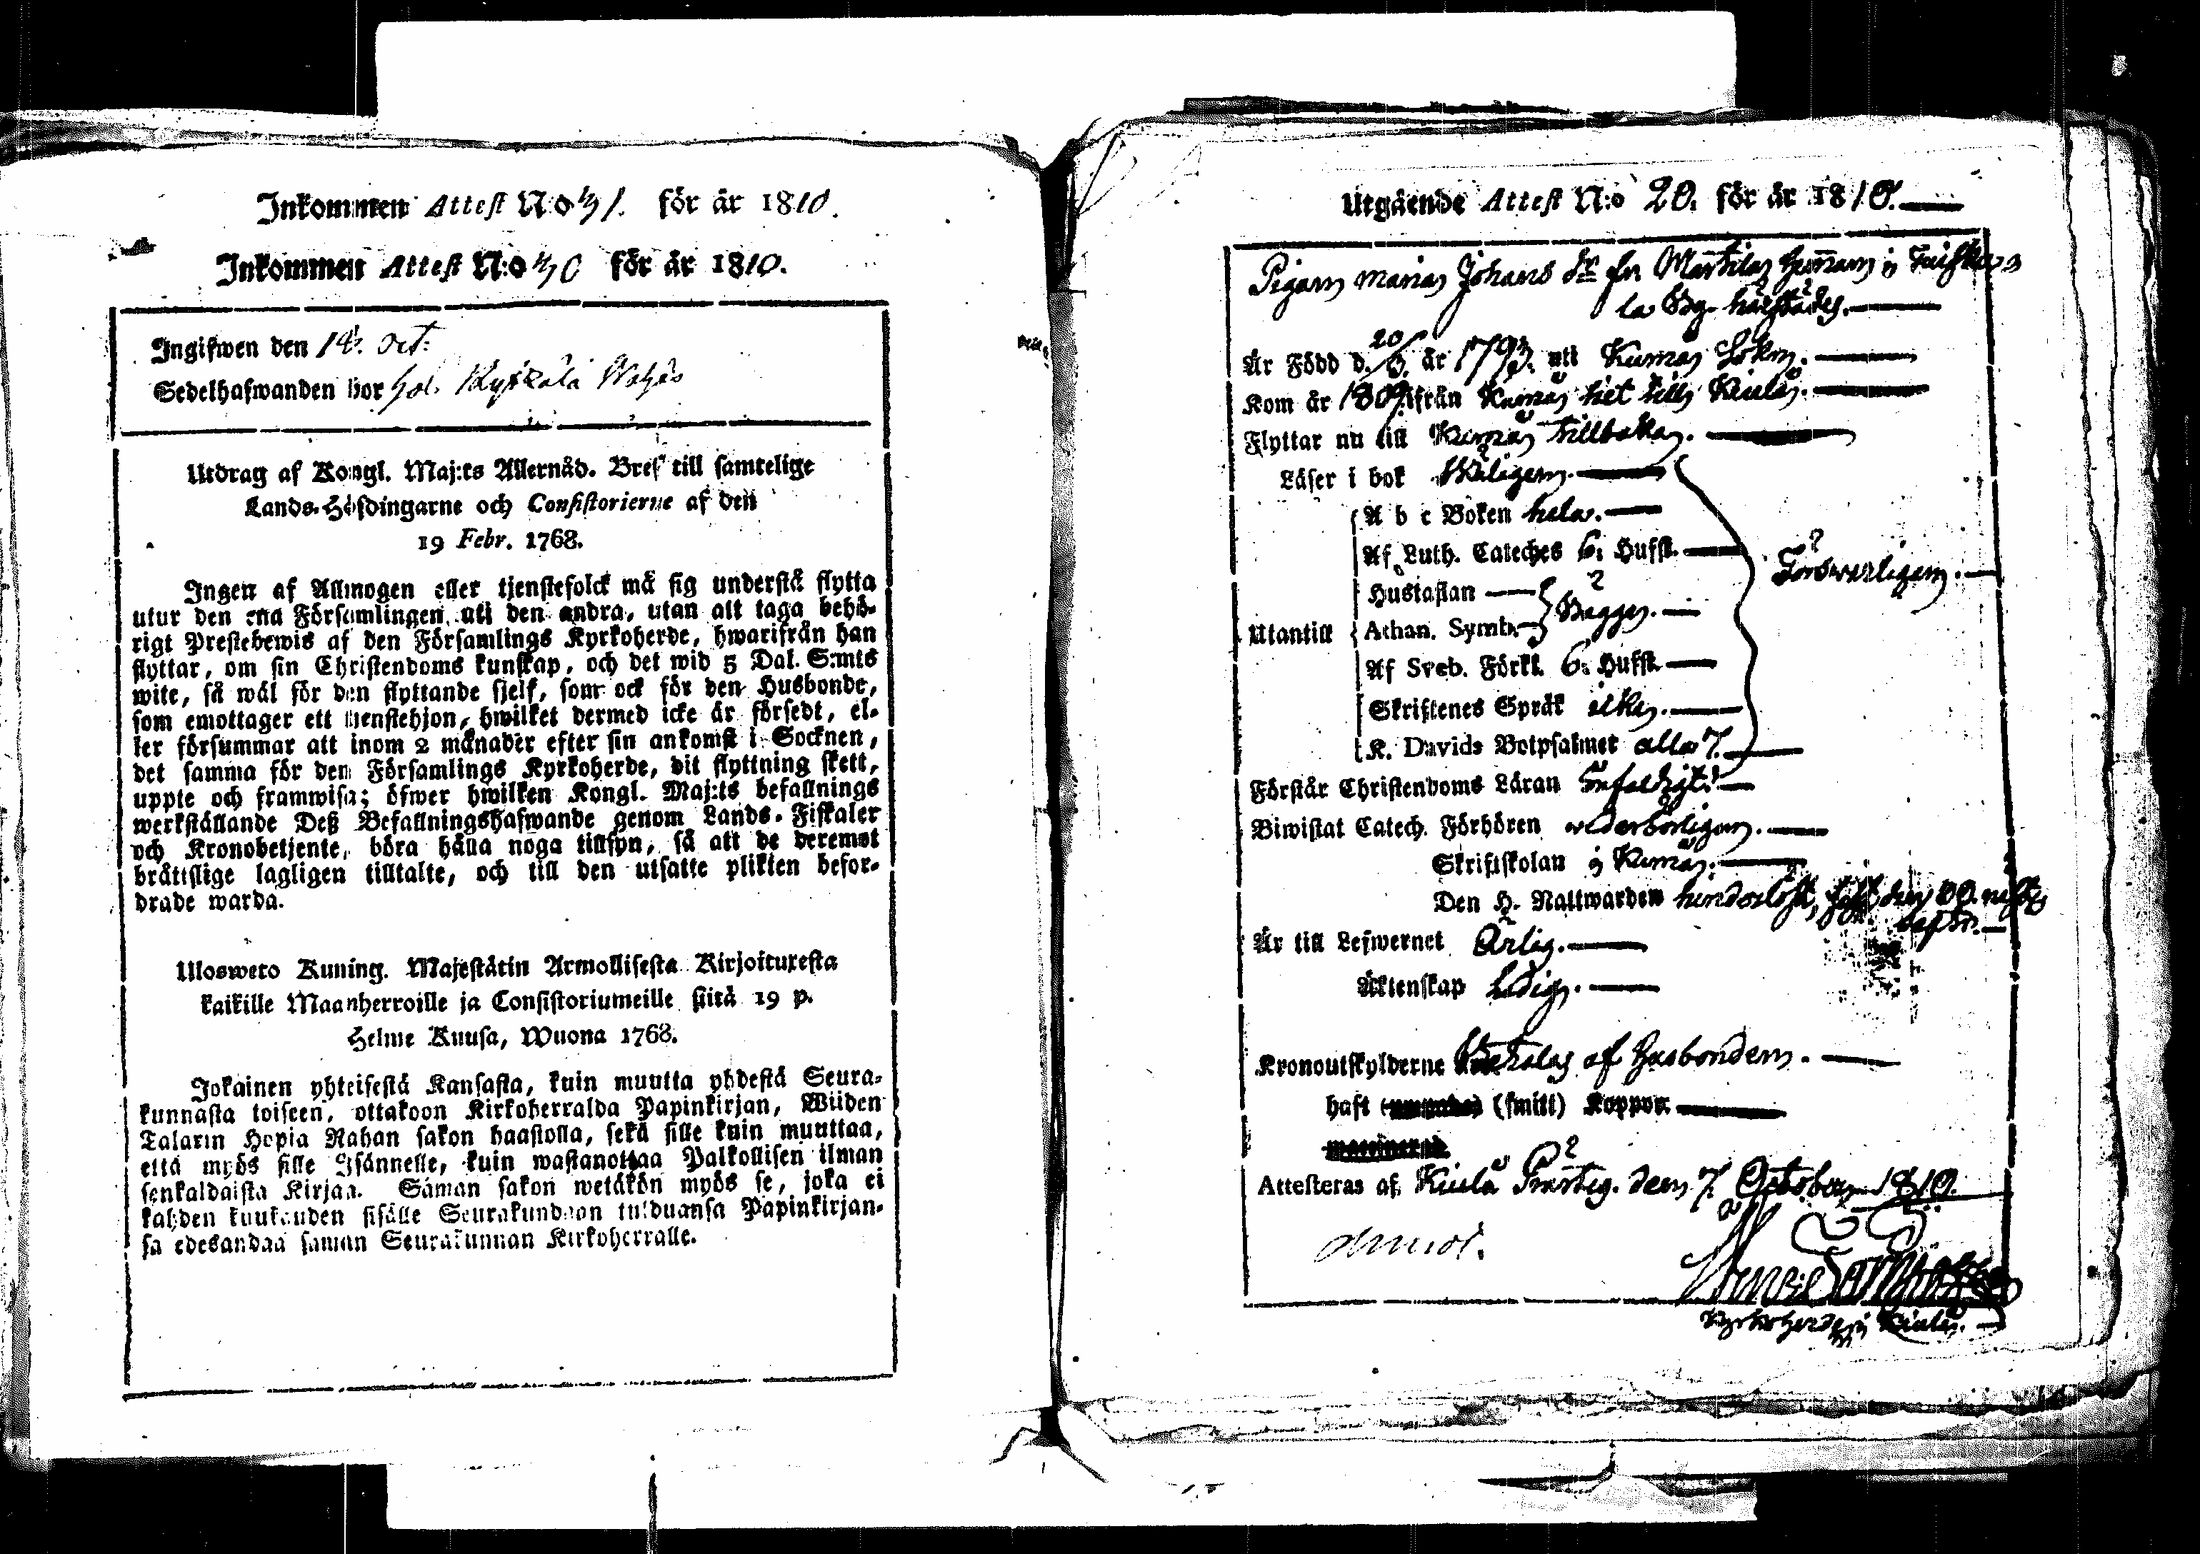 Inkommen Attest N:o 41. för år 1810.
Inkommen Attest N:o 40 för år 1810.
Ingifwen den 18. Oct:
Sedelhafwanden bor
Utdrag af Kongl. Maj:ts Allernåd. Bref till samtelige
Lands-Höfdingarne och Consistorierne af den
19 Febr. 1768.
Ingen af Allmogen eller tjenstefolck må sig understå flytta
utur den ena Församlingen uti den andra, utan att taga behö-
rigt Prestebewis af den Församlings Kyrkoherde, hwarifrån han
flyttar, om sin Christendoms kunskap, och det wid 5 Dal. S:mts
wite, så wäl för den flyttande sjelf, som ock för den Husbonde,
som emottager ett tienstehjon, hwilket dermed icke är försedt, el-
ler försummar att inom 2 månader efter sin ankomst i Socknen,
det samma för den Församlings Kyrkoherde, dit flyttning skett,
uppte och framwisa; öfwer hwilken Kongl. Maj:ts befallnings
werkställande Deß Befallningshafwande genom Lands-Fiskaler
och Kronobetjente, böra hålla noga tillsyn, så att de deremot
bråttslige lagligen tilltalte, och till den utsatte plikten befor-
drade warda.
Ulosweto Kuning. Majestätin Armollisesta Kirjoituxesta
kaikille Maanherroille ja Consistoriumeille siitä 19 p.
Helme Kuusa, Wuona 1768.
Jokainen yhteisestä Kansasta, kuin muutta yhdestä Seura-
kunnasta toiseen, ottakoon Kirkoherralda Papinkirjan, Wiiden
Talarin Hopia Rahan sakon haastolla, sekä sille kuin muuttaa,
että myös sille Isännelle, kuin wastanottaa Palkollisen ilman
senkaldaista Kirjaa. Saman sakon wetäkön myös se, joka ei
kahden kuukauden sisälle Seurakundaan tulduansa Papinkirjan-
sa edesandaa saman Seurakunnan Kirkoherralle.
Utgående Attest N:o 20. för år 1810.
Pigan Maria Johans dr fr. Martila hemman i
la By härstädes.
Är Född d. 20/ år 1793. uti Kumo Sokn.
Kom år 1809 ifrån Kumo hit till Kiula.
Flyttar nu till Kumo tillbaka.
Läser i bok
Utantill
A b c Boken hela.
Af Luth. Cateches 6. Hufst.
Hustaflan
Athan. Symb. Bägge.
Af Sveb. Förkl. 6. Hufst.
Skriftenes Språk icke.
K. Davids Botpsalmer alla 7.
Förswarligen.
Förstår Christendoms Läran enfaldigt.
Biwistat Catech. Förhören wederbörligen.
Skriftskolan i Kumo.
Den H. Nattwarden hinderlöst,
Är till Lefwernet Ärlig.
Äktenskap Ledig.
Kronoutskylderne betalas af Husbonden.
haft (smitt) Koppor
Attesteras af Kiula Prästeg. den 7. October 1810.
Kyrkoherde i Kiula.